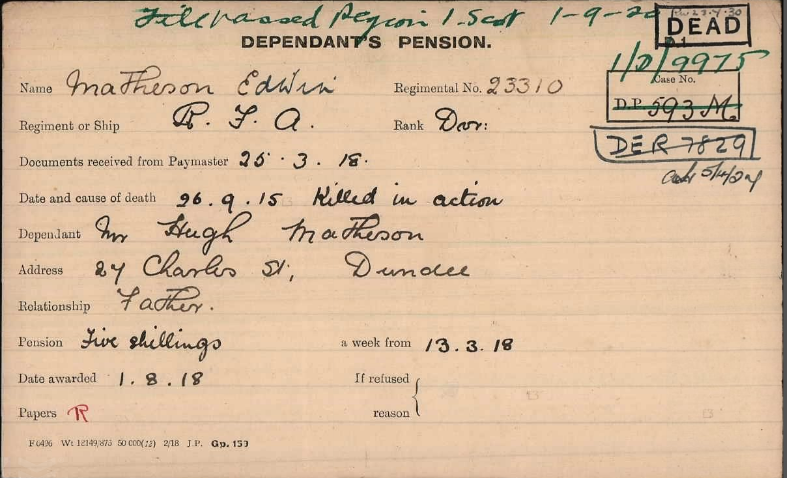 File passed Region 1. Scot 1-9-20
DEAD
DEPENDANT'S PENSION.
1/D/9975
Name Matheson Edwin Regimental No. 23310
Case No.
D.P. 593 M.
Regiment or Ship R. F. A. Rank Dvr:
DER 7829
Documents received from Paymaster 25 . 3 . 18.
Date and cause of death 26 . 9 . 15 Killed in action
Dependant Mr Hugh Matheson
Address 27 Charles St, Dundee
Relationship Father.
Pension Five shillings a week from 13 . 3 . 18
Date awarded 1 . 8 . 18 If refused
Papers R reason
F 6496 Wt 12149/875 50 000(12) 2/18 J.P. Gp. 133